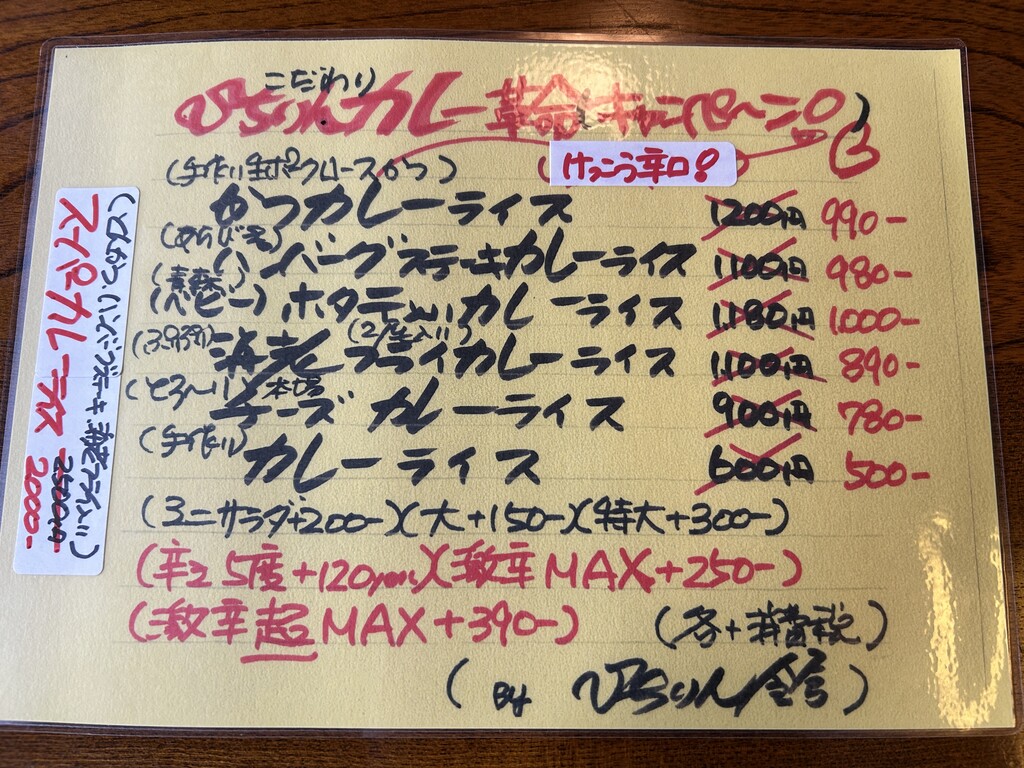 こだわり
ぴちりんカレー革命キャンペーン
けっこう辛口!
かつカレーライス 1200円 990-
(あらびき)
ハンバーグステーキカレーライス 1,100円 980-
(ベビー) ホタテ入りカレーライス 1,180円 1,000-
(2尾入り)
海老フライカレーライス 1,100円 890-
(とろ〜り) 本場
チーズカレーライス 900円 780-
(手作り)
カレーライス 600円 500-
(ミニサラダ+200-)(大+150-)(特大+300-)
(辛さ5度+120yen)(激辛MAX+250-)
(激辛超MAX+390-) (各+消費税)
(By ぴちりん舘)
(とんかつ、ハンバーグステーキ、海老フライ入り)
スペカレーライス 2500円 2000-